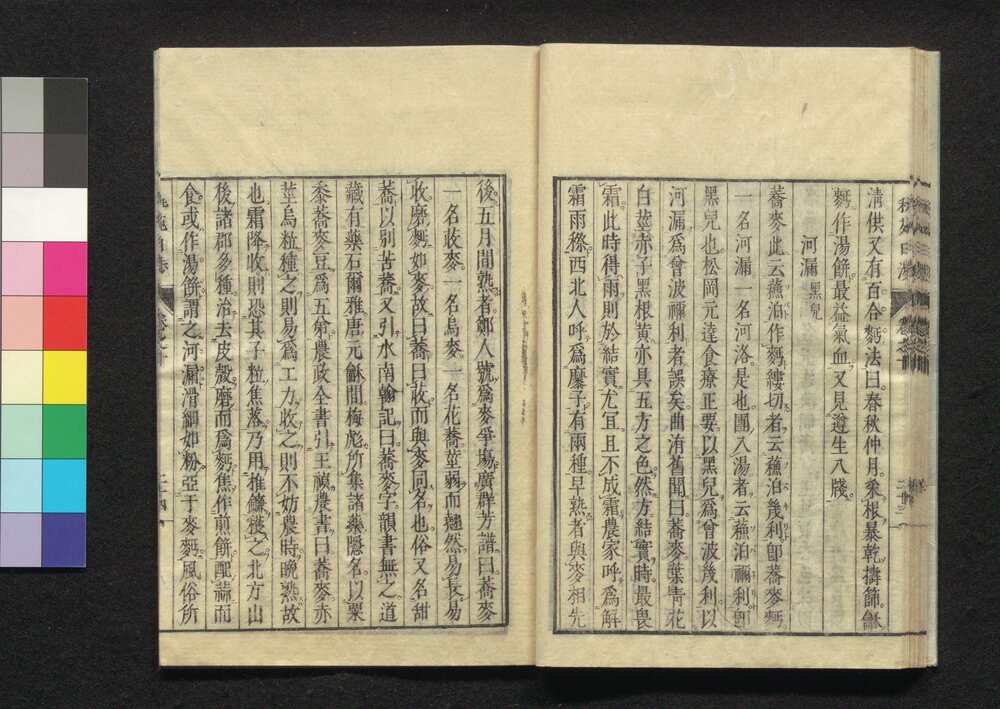 清供又有百合麪法曰春秋仲月采根暴乾擣篩龢
麪作湯餠最益氣血又見遵生八牋
河漏 黑兒
蕎麥此云蕎泊作麪縷切者云蕎泊幾利卽蕎麥麪
一名河漏一名河洛是也團入湯者云蕎泊禰利卽
黑兒也松岡元逹食療正要以黑兒爲曾波幾利以
河漏爲曾波禰利者誤矣曲洧舊聞曰蕎麥葉靑花
白莖赤子黑根黃亦具五方之色然方結實時最畏
霜此時得雨則於結實尤宜且不成霜農家呼爲解
霜雨穄西北人呼爲麋子有兩種早熟者與麥相先
後五月間熟者鄭人號爲麥爭塲廣群芳譜曰蕎麥
一名荍麥一名烏麥一名花蕎莖弱而翹然易長易
收磨麪如麥故曰蕎曰荍而與麥同名也俗又名甜
蕎以別苦蕎又引水南翰記曰蕎麥字韻書無之道
藏有藥石爾雅唐元龢間梅彪所集諸藥隱名以粟
黍蕎麥豆爲五弟農政全書引王禎農書曰蕎麥赤
莖烏粒種之則易爲工力收之則不妨農時晩熟故
也霜降收則恐其子粒焦落乃用推鐮穫之北方山
後諸郡多種治去皮殼磨而爲麪焦作煎餠配蒜而
食或作湯餠謂之河漏滑細如粉亞于麥麪風俗所